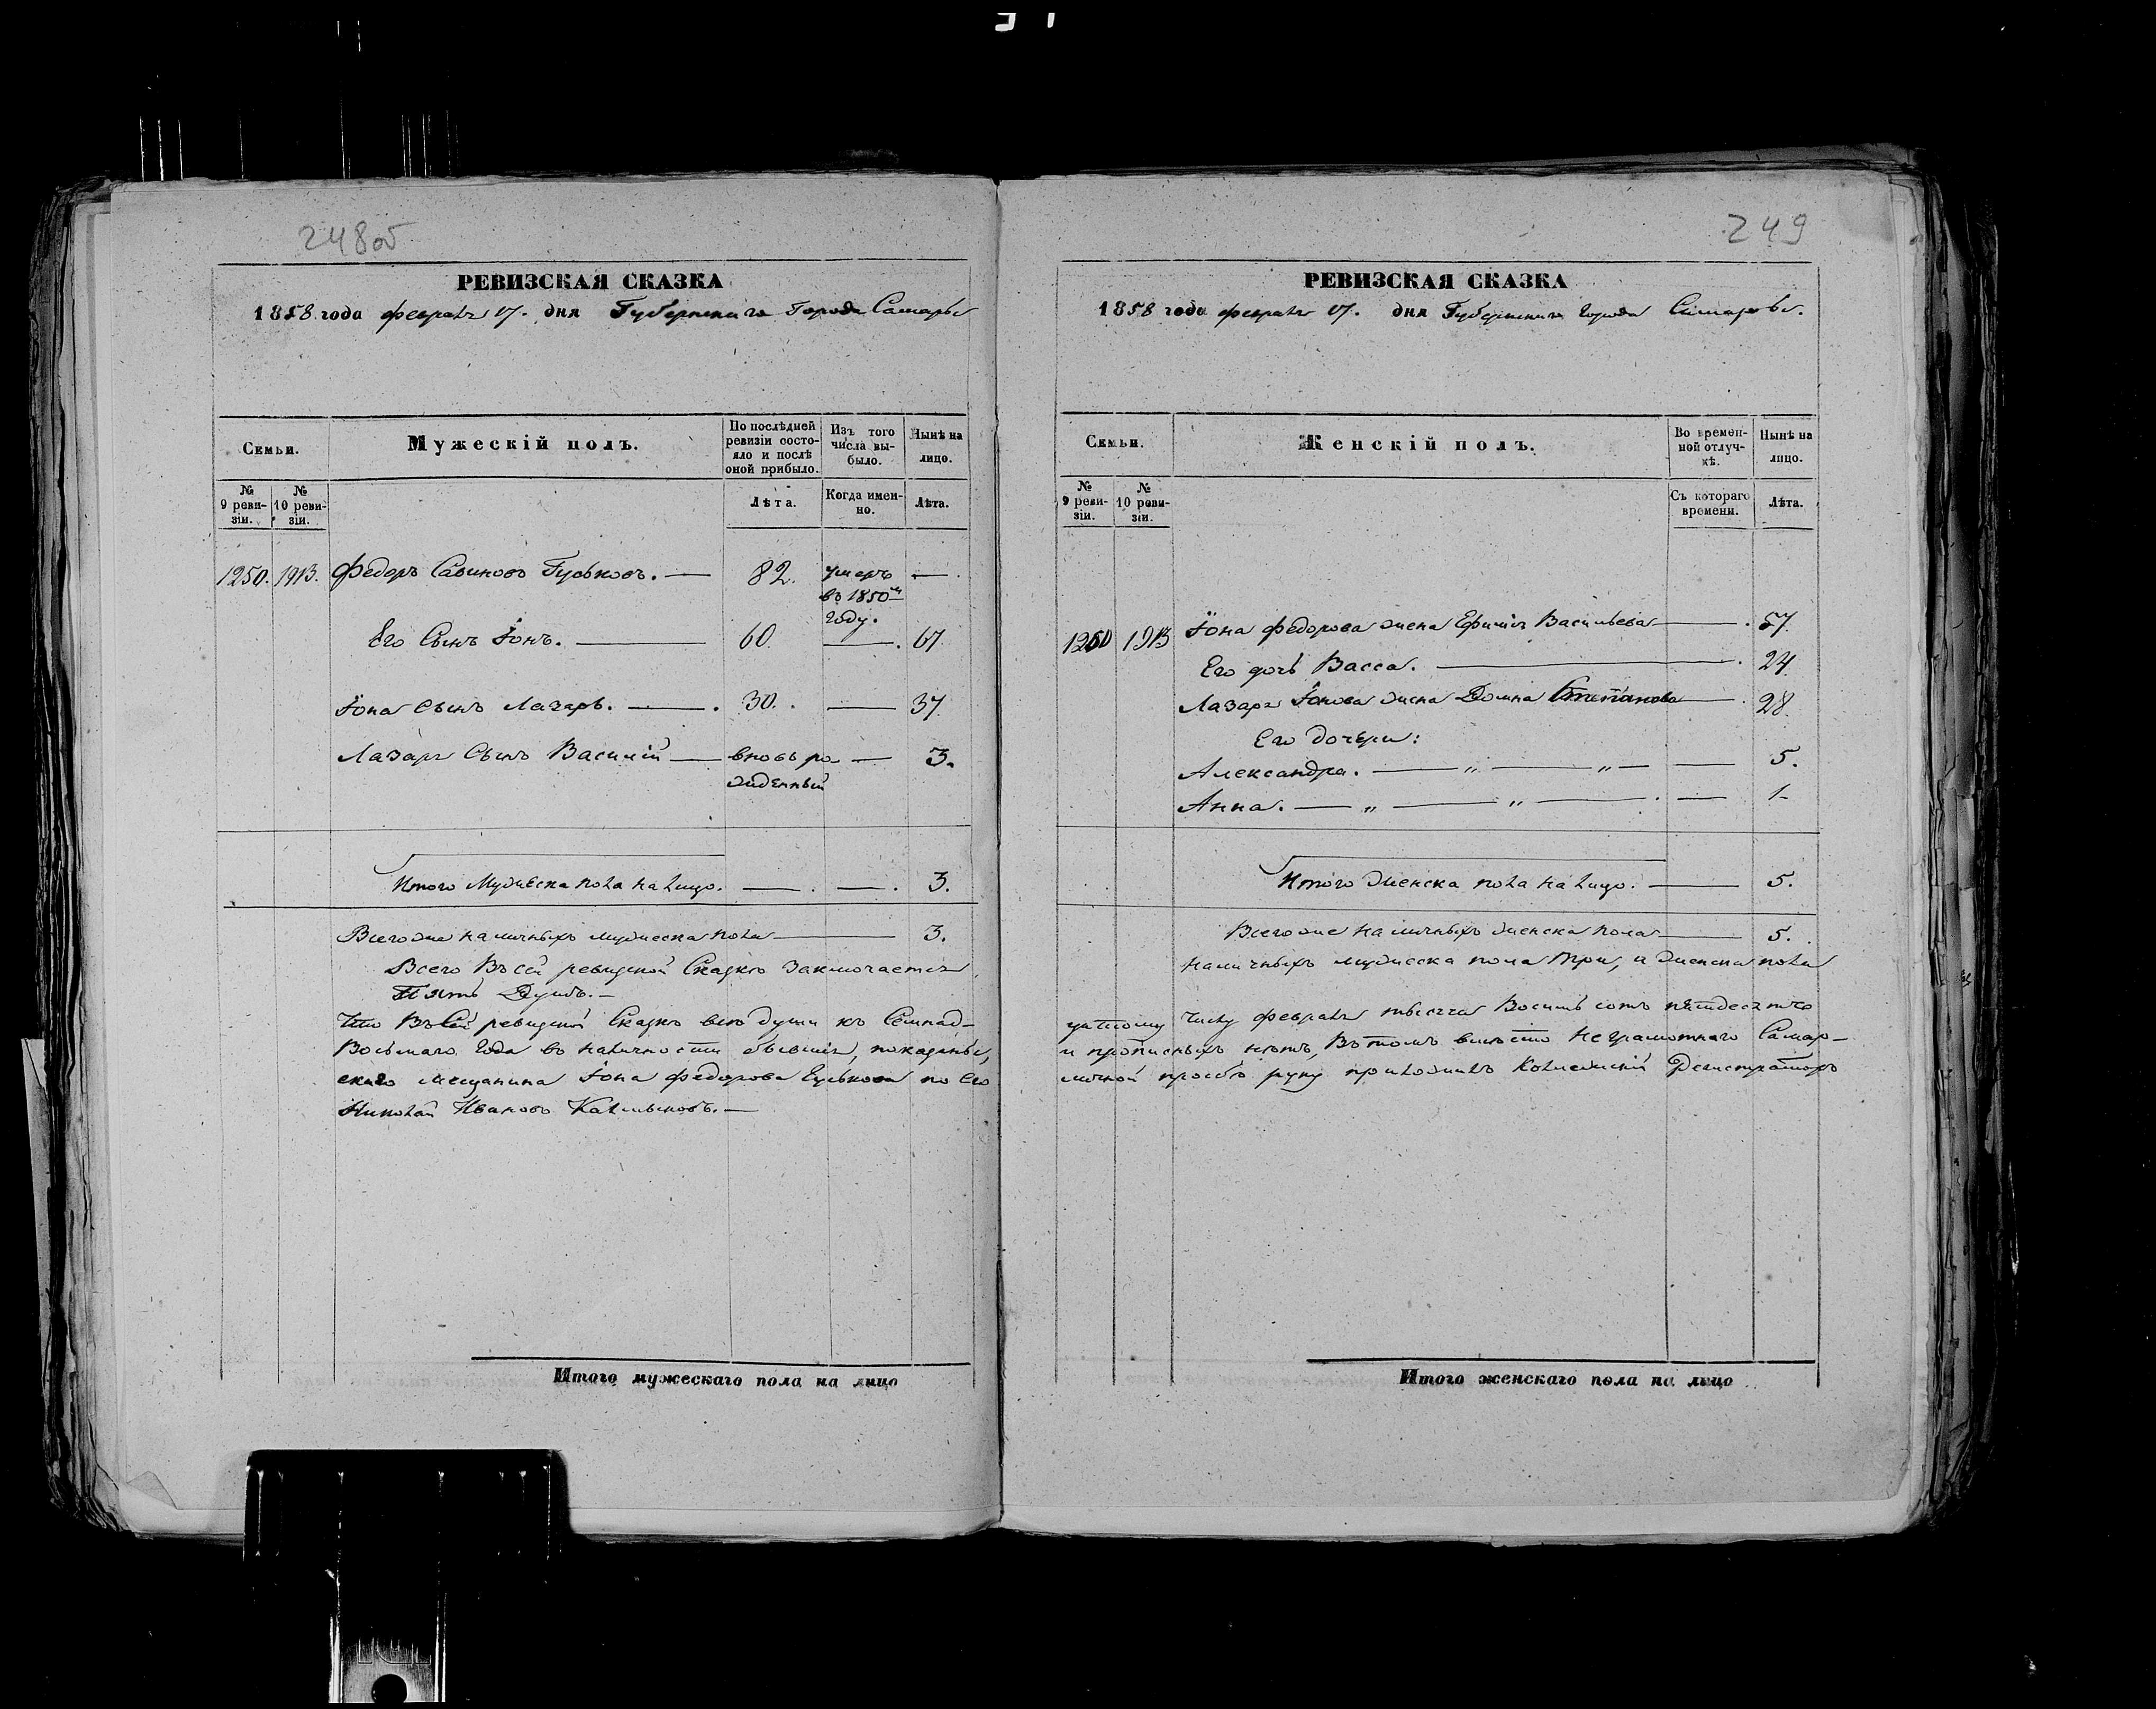 248об
РЕВИЗСКАЯ СКАЗКА
1858 года февраля 17. дня Губернскаго города Самары
Семьи.
Мужескій полъ.
По послѣдней ревизіи состояло и послѣ оной прибыло.
Изъ того числа выбыло.
Нынѣ на лицо.
№ 9 ревизіи.
№ 10 ревизіи.
Лѣта.
Когда именно.
Лѣта.
1250. 1913. Федоръ Савиновъ Гуськовъ. — 82. умеръ въ 1850м году. —
Его Сынъ Iонъ. — 60. — 67
Iона сынъ Лазарь. — 30. — 37
Лазаря Сынъ Василій — вновь рожденный — 3.
Итого Мужеска пола на лицо. — 3.
Всего же наличныхъ мужеска пола — 3.
Всего Въ сей ревизской Сказкѣ заключается
Пять Душъ. —
Что Въ Сей ревизской Сказкѣ всѣ души къ Семнад-
Восьмаго Года въ наличности бывшія, показаны,
скаго мещанина Iона Федорова Гуськова по Его
Николай Ивановъ Калмыковъ. —
Итого мужескаго пола на лицо
249
РЕВИЗСКАЯ СКАЗКА
1858 года февраля 17. дня Губернскаго города Самары.
Семьи.
Женскій полъ.
Во временной отлучкѣ.
Нынѣ на лицо.
№ 9 ревизіи.
№ 10 ревизіи.
Съ котораго времени.
Лѣта.
1250 1913 Iона Федорова жена Ефимія Васильева — 57.
Его дочь Васса. — 24
Лазаря Iонова жена Домна Степанова — 28.
Его дочери:
Александра. — „ — „ — — 5.
Анна. — „ — „ — — 1
Итого Женска пола на лицо. — 5.
Всего же наличныхъ женска пола — 5.
наличныхъ мужеска пола три, а женска пола
цатому числу февраля тысяча Восемь сотъ пятьдесятъ
и прописныхъ нѣтъ, Въ томъ вмѣсто неграмотнаго Самар-
личной просьбѣ руку приложилъ Колежскій Регистраторъ
Итого женскаго пола на лицо